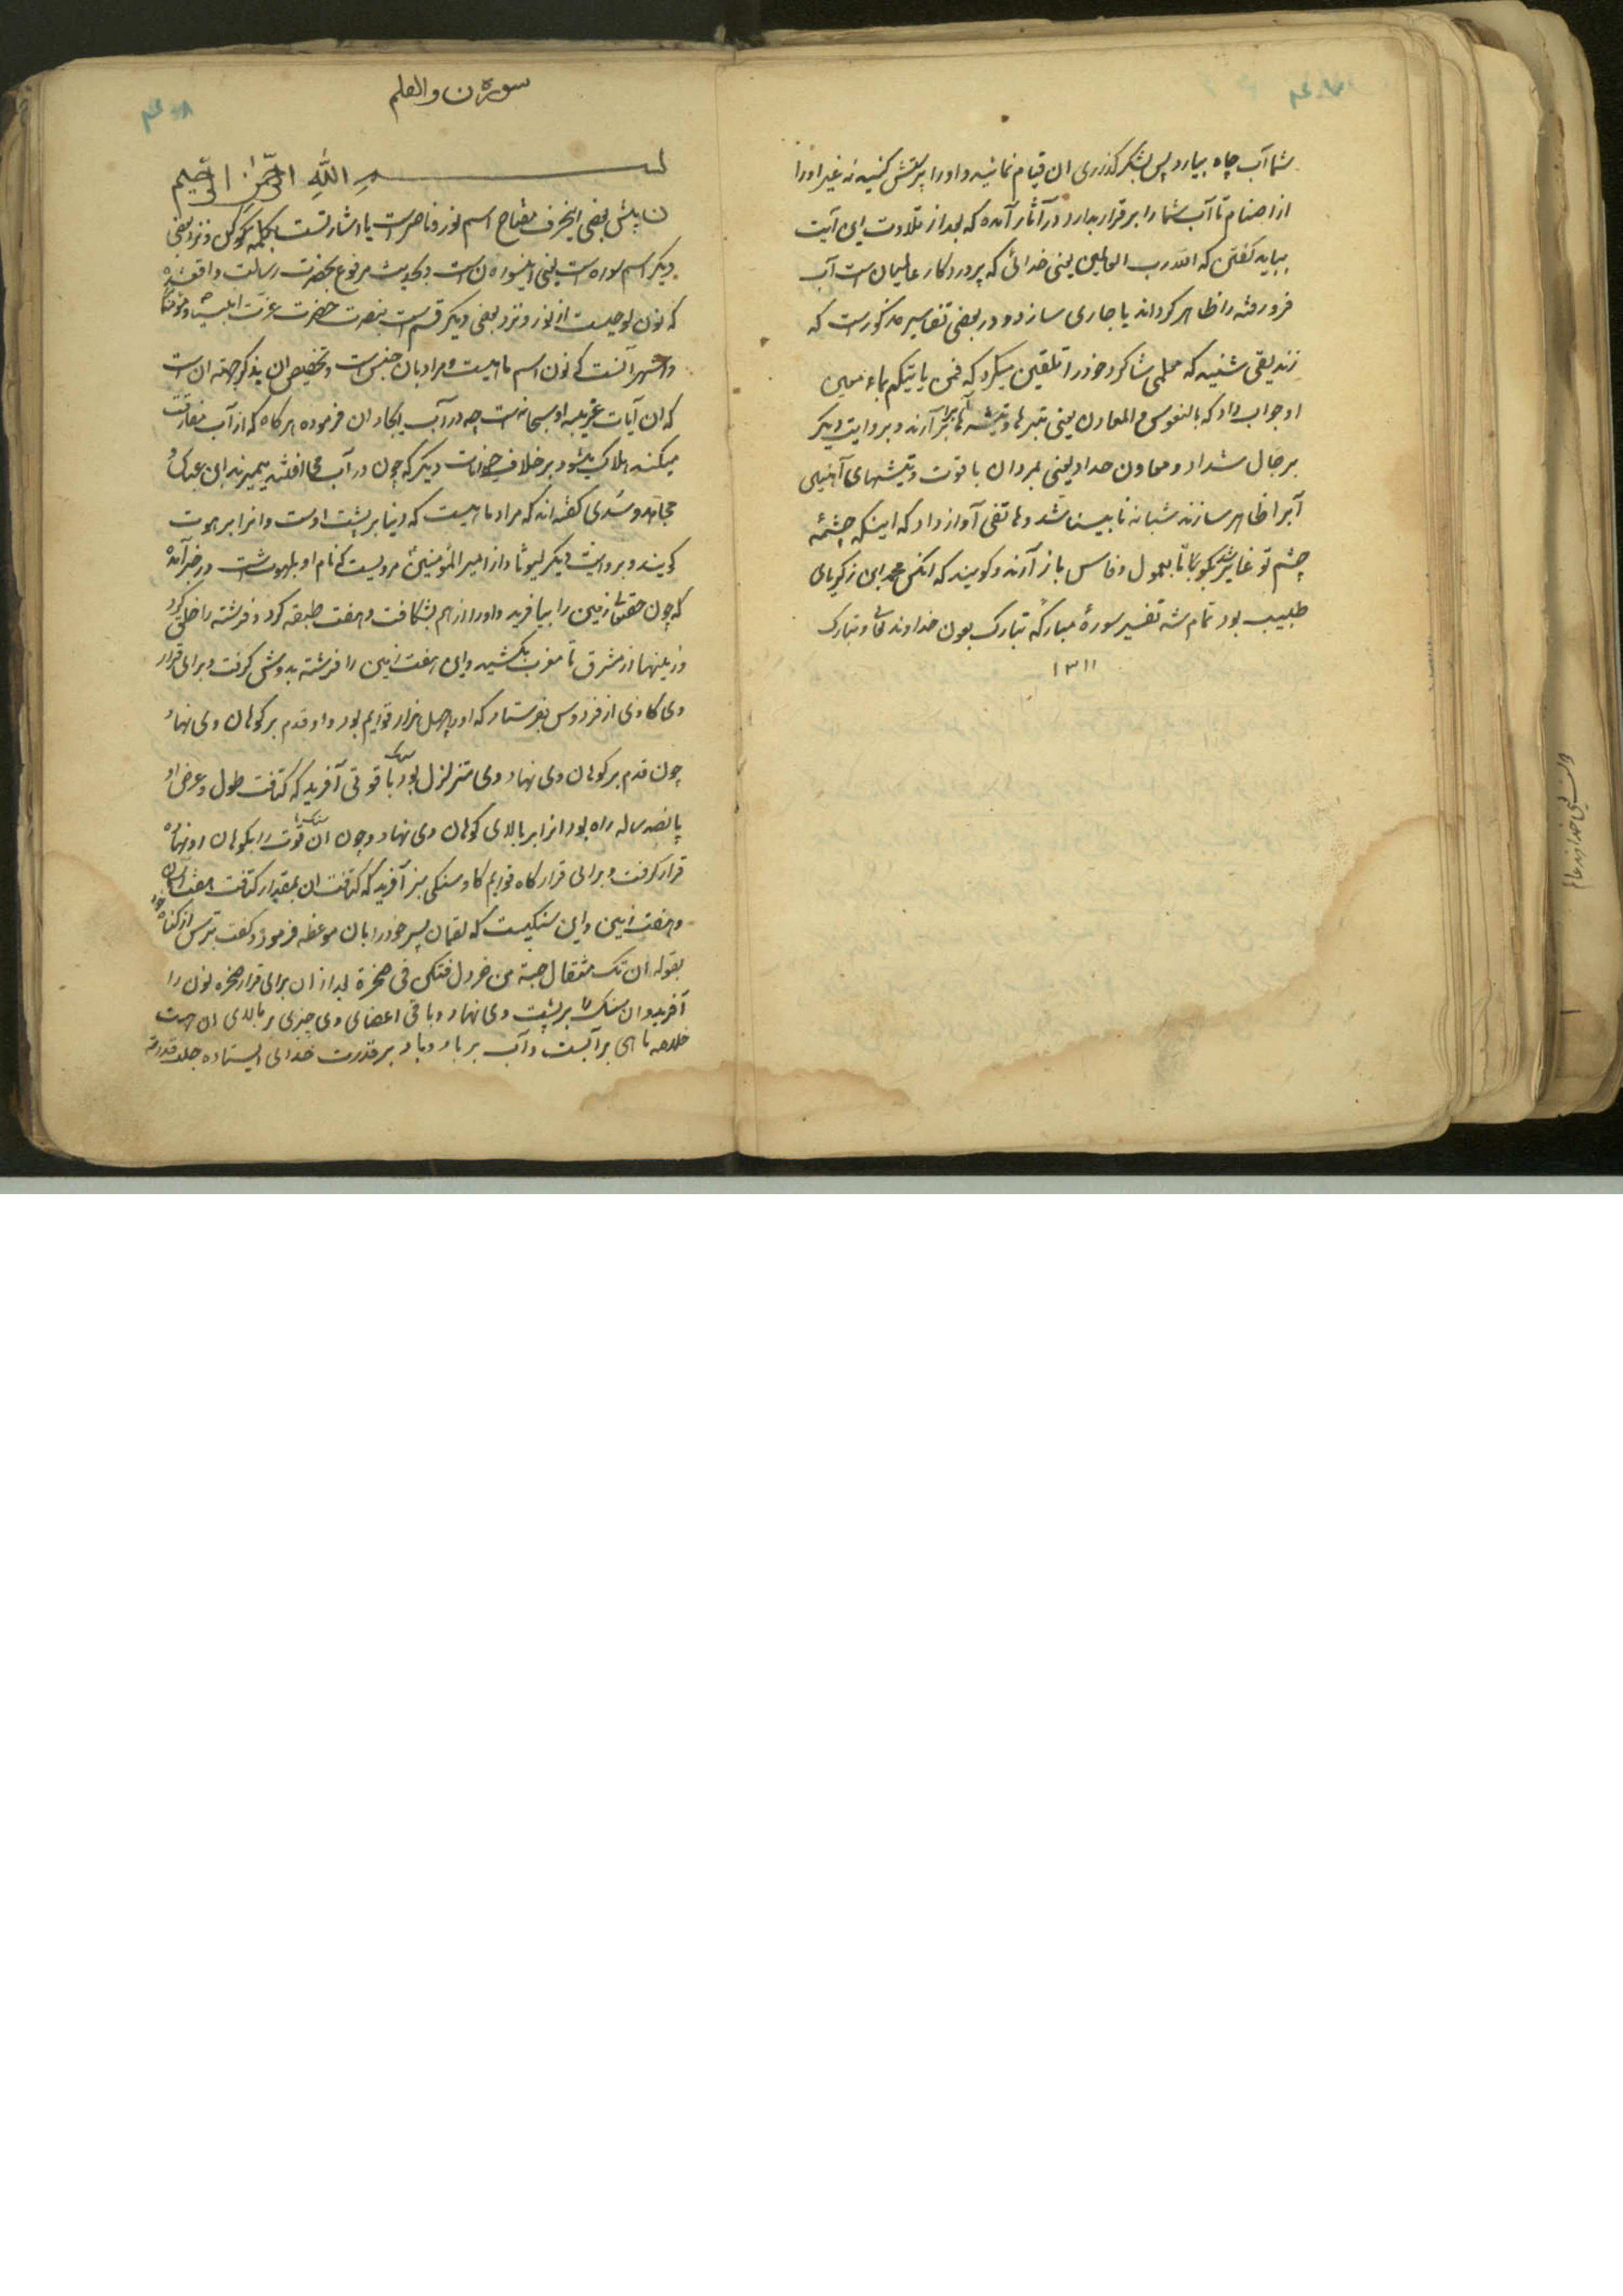 شما آب چاه بیارد پس بشکر کذاری ان قیام نمائید و او را پرستش کنید نه غیر او را
از اصنام تا آب شما را برقرار بدارد در آثار آمده که بعد از تلاوت این آیت
بباید کفتن که الله رب العالمین یعنی خدائی که پروردکار عالمیان است آب
فرو رفته را ظاهر کرداند یا جاری سازد و در بعضی تفاسیر مذکور است که
زندیقی شنید که معلمی شاکرد خود را تلقین میکرد که فمن یاتیکم بماء معین
او جواب داد که بالفوس و المعاون یعنی بتبرها و تیشه ها آب برآرند و بروایت دیکر
برجال شداد و معاون حداد یعنی بمردان با قوت و تیشهای آهنین
آبرا ظاهر سازند شبانه نابینا شد و هاتفی آواز داد که اینکه چشمهٔ
چشم تو غایر شد بکو تا بمعول و فاس باز آرند و کویند که انکس محمد ابن زکریای
طبیب بود تمام شد تفسیر سورهٔ مبارکه تبارک بعون خداوند تعالی و تبارک
۱۳۱۱
سوره ن والقلم
بسم الله الرحمن الرحیم
ن پیش بعضی اینحرف مفتاح اسم نور و ناصر است یا اشارتست بکلمه و نزد بعضی
دیکر اسم سوره است یعنی اینسوره ن است و بحدیث مرفوع بحضرت رسالت واقع شده
که نون لوحیست از نور و نزد بعضی دیکر قسم است بنصرت حضرت عزت
و اشهر آنست که نون اسم ماهیست و مراد بان جنس است و تخصیص ان بذکر جهته ان است
که ان آیات غریبه او سبحانه است چه در آب ایجاد ان فرموده هر کاه که از آب مفارقت
میکند هلاک میشود بر خلاف حیوانات دیکر که چون در آب می افتند میمیرند ابن عباس و
مجاهد و سدی کفته اند که مراد ماهیست که دنیا بر پشت اوست و انرا بر هوت
کویند و بروایت دیکر لیوثا و از امیر المؤمنین مرویست که نام او بلهوت است در خبر آمده
که چون حقتعالی زمین را بیافرید و او را از هم بشکافت و هفت طبقه کرد و فرشته را خلق کرد
و زمینها از مشرق تا مغرب بکشید و این هفت زمین را فرشته بدوش کرفت و برای قرار
وی کاوی از فردوس بفرستاد که او را چهل هزار قوایم بود و او قدم بر کوهان وی نهاد
چون قدم بر کوهان وی نهاد وی متزلزل بود یاقوتی آفرید که کثافت طول و عرض او
پانصد ساله راه بود انرا بر بالای کوهان وی نهاد و چون ان یاقوت را بکوهان او نهاده
قرار کرفت و برای قرار کاه قوایم کاو سنکی سبز آفرید که کثافت ان بمقدار کثافت هفت آسمان
و هفت زمین و این سنکیست که لقمان پسر خود را بان موعظه فرمود و کفت بترس از کناه خود
بقوله ان تک مثقال حبة من خردل فتکن فی صخرة بعد از ان برای قرار صخره نون را
آفرید و ان سنک را بر پشت وی نهاد و باقی اعضای وی چیزی بر بالای ان است
خلاصه ماهی بر آبست و آب بر باد و باد بر قدرت خدای ایستاده جلت قدرته